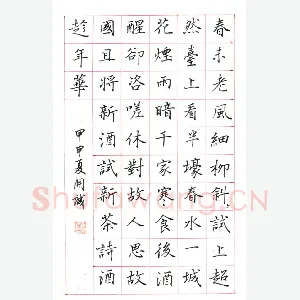 春未老風細柳斜試上超
然臺上看半壕春水一城
花煙雨暗千家寒食後酒
醒卻咨嗟休對故人思故
國且將新酒試新茶詩酒
趁年華
Shufawang.CN